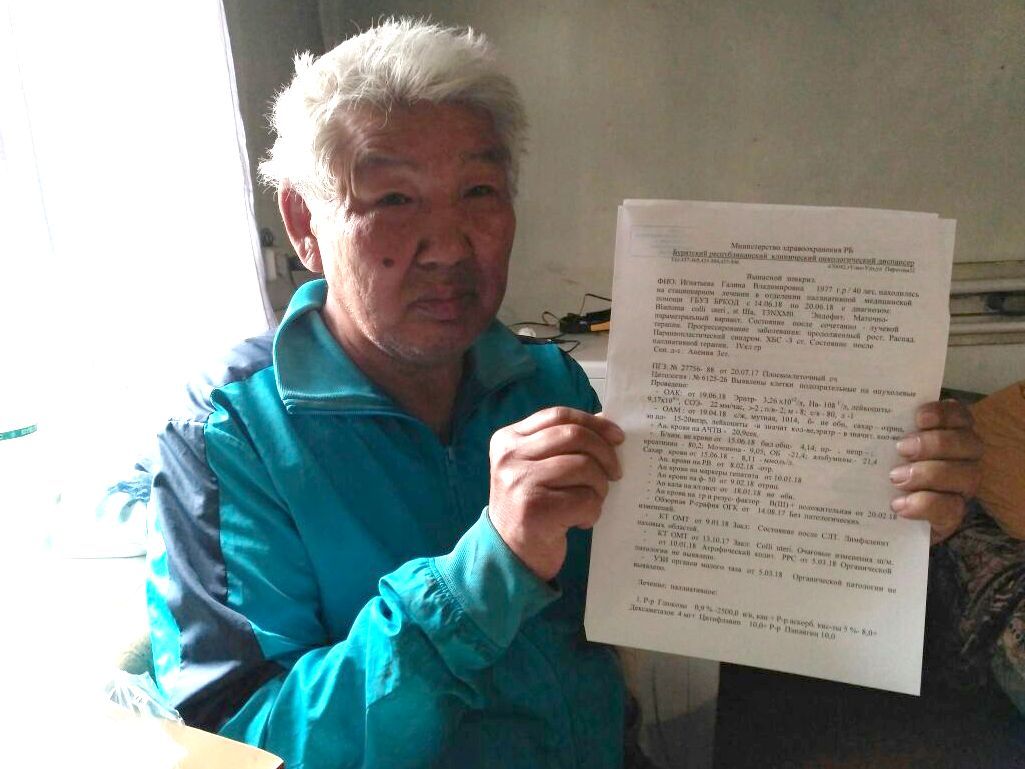 Министерство здравоохранения РБ
Бурятский республиканский клинический онкологический диспансер
Выписной эпикриз.
ФИО: Игнатьева Галина Владимировна 1977 г.р / 40 лет. находилась
на стационарном лечении в отделении паллиативной медицинской
помощи ГБУЗ БРКОД с 14.06.18 по 20.06.18 с диагнозом:
colli uteri, st IIIa, T3NXM0. Эндофит. Маточно-
параметральный вариант. Состояние после сочетанно - лучевой
терапии. Прогрессирование заболевания: продолженный рост. Распад.
Паранеопластический синдром. ХБС -3 ст. Состояние после
паллиативной терапии. IVкл.гр
Соп. д-з: Анемия 3ст.
ПГЗ. № 27756- 88 от 20.07.17 Плоскоклеточный
Цитология: № 6125-26 Выявлены клетки подозрительные на опухолевые
Проведено:
- ОАК: от 19.06.18 Эритр- 3,26 х10¹²/л, Нв- 108 г/л, лейкоциты-
СОЭ- 22 мм/час, э-2, п/я- 2; м - 8; с/я - 80,
- ОАМ : от 19.04.18 с/ж, мутная, 1014, б- не обн, сахар - отриц,
15-20
- Ан. крови на АЧТВ - 20,9сек.
- Б/хим. ан крови от 15.06.18 бил общ- 4,14;
креатинин - 80,2; Мочевина- 9,05, ОБ -21,4; альбумины- 21,4
Сахар крови от 15.06.18 - 8,11 -ммоль/л.
- Ан. крови на РВ от 8.02.18 -отр.
- Ан крови на маркеры гепатита от 10.01.18
- Ан крови на ф- 50 от 9.02.18 отриц.
- Ан кала на я/глист от 18.01.18 не обн.
- Ан крови на гр и резус- фактор В(III) + положительная от 20.02.18
- Обзорная Р-графия ОГК от 14.08.17 Без патологических
изменений.
- КТ ОМТ от 9.01.18 Закл: Состояние после СЛТ. Лимфаденит
паховых областей.
- КТ ОМТ от 13.10.17 Закл: Colli uteri. Очаговые изменения п/м.
- от 10.01.18 Атрофический колит. РРС от 5.03.18 Органической
патологии не выявлено.
- УЗИ органов малого таза от 5.03.18 Органической патологии не
выявлено.
Лечение: паллиативное:
1. Р-р Глюкозы в/в, кап + Р-р аскорб. кис-ты 5 %- 8,0+
Дексаметазон 4 мг+ Цитофлавин 10,0+ Р-р Панангин 10,0